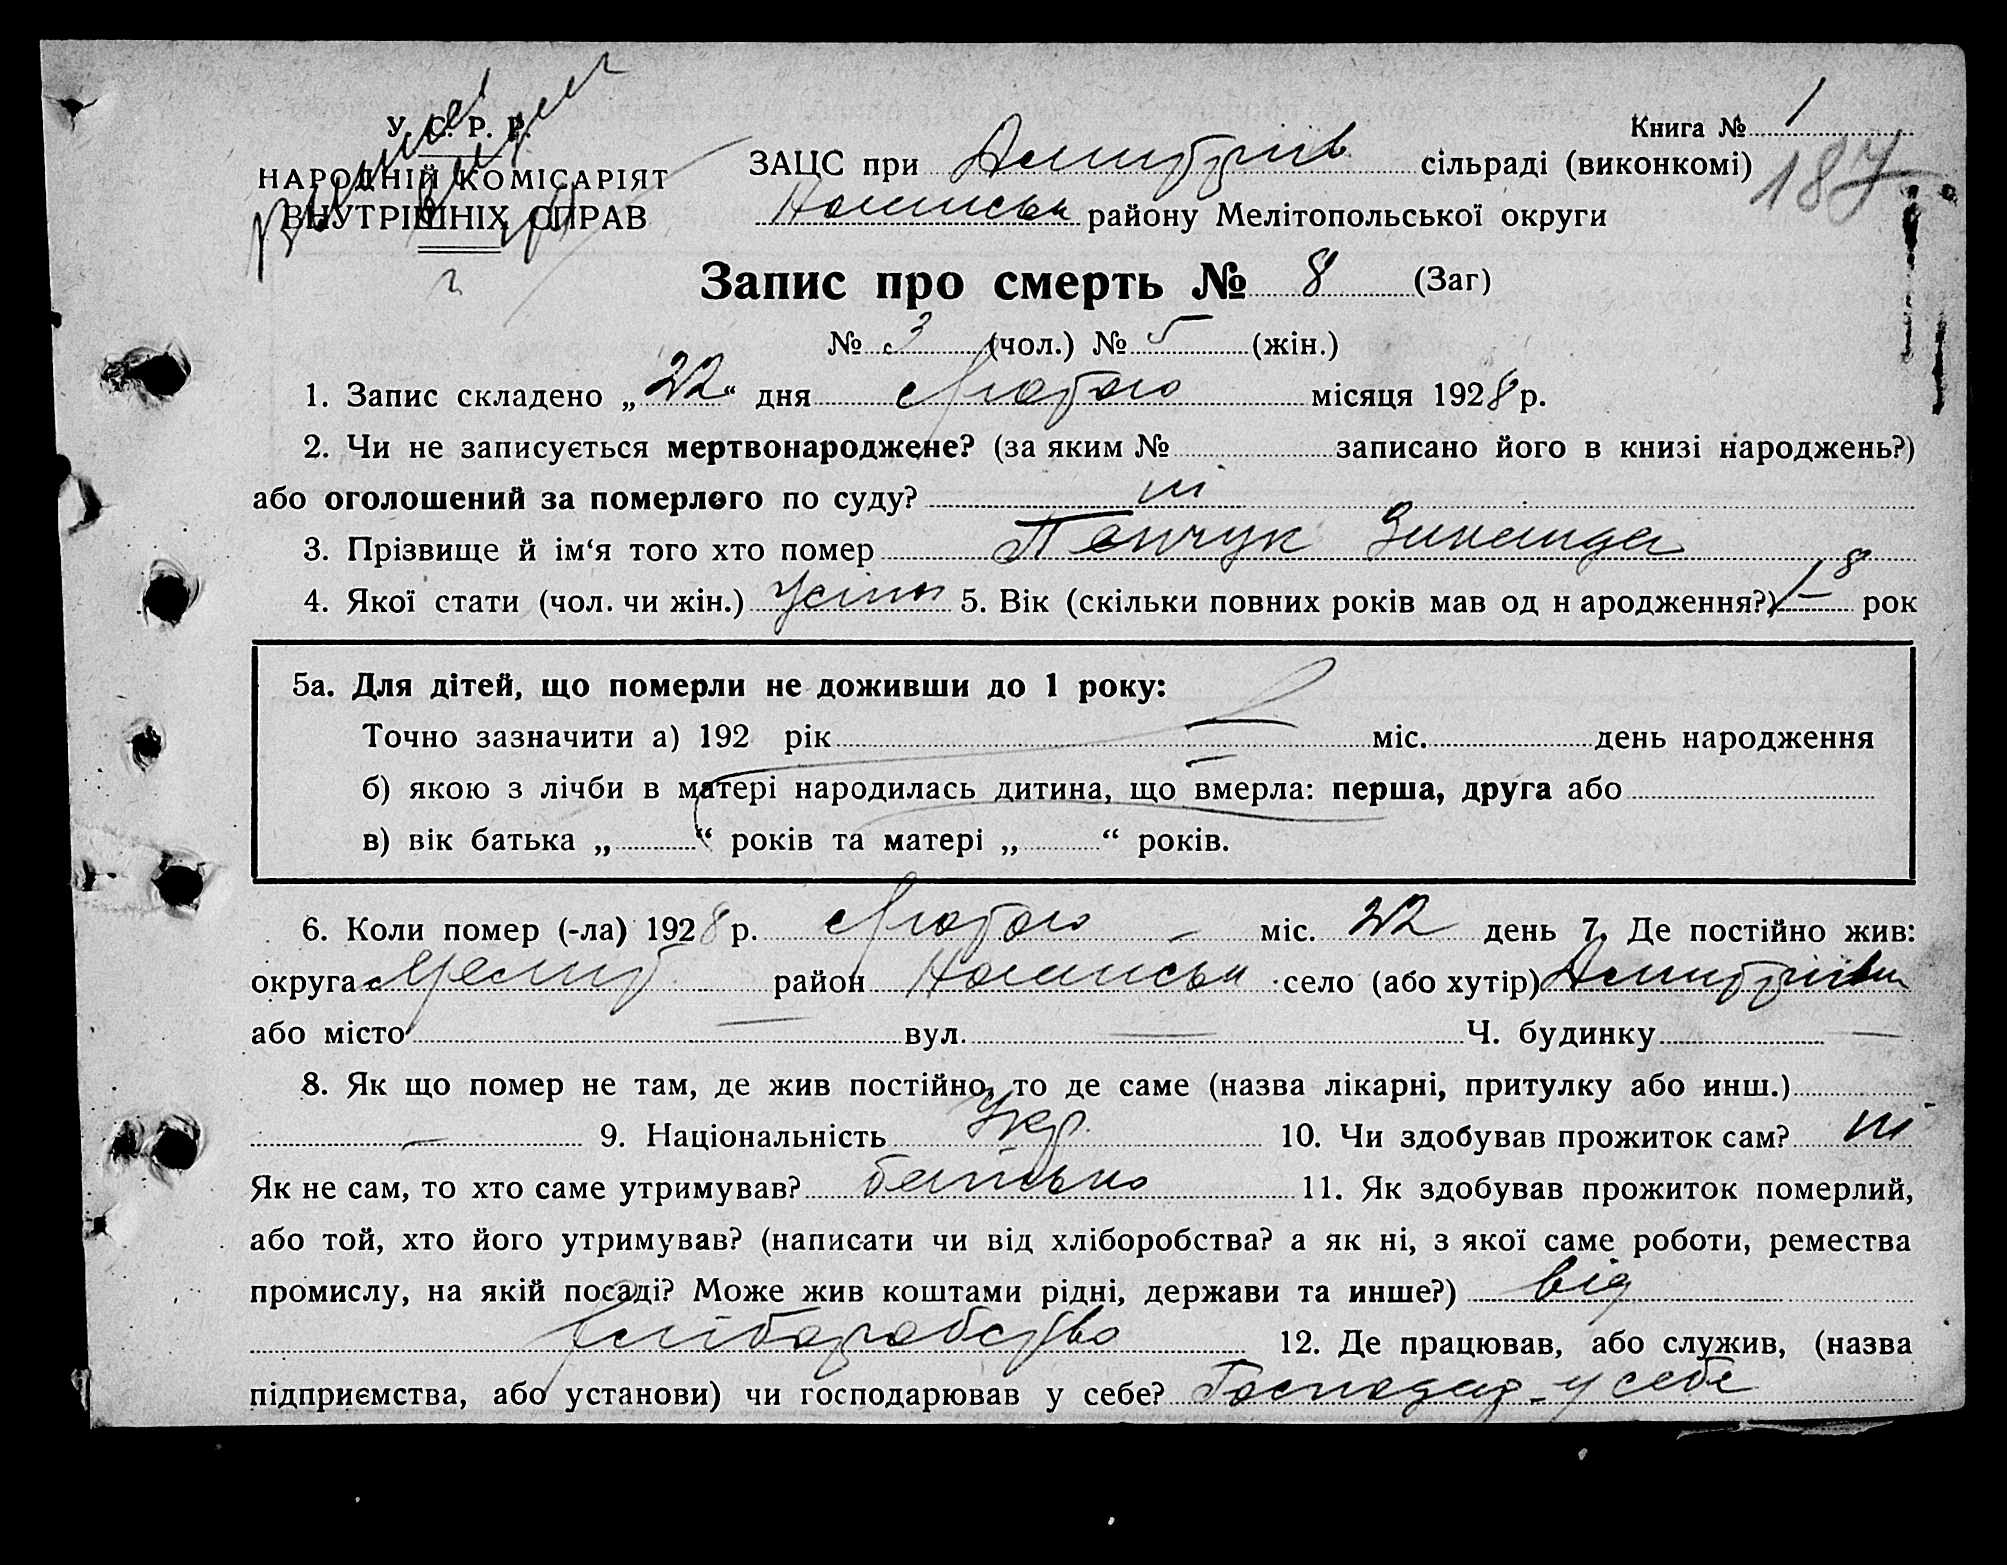 У. С. Р. Р.
Книга № 1
НАРОДНІЙ КОМІСАРІЯТ
ВНУТРІШНІХ СПРАВ
ЗАЦС при Дмитрів сільраді (виконкомі)
187
району Мелітопольської округи
Запис про смерть № 8 (Заг)
№ 3 (чол.) № 5 (жін.)
1. Запис складено „22“ дня Лютого місяця 1928 р.
2. Чи не записується мертвонароджене? (за яким № записано його в книзі народжень?)
або оголошений за померлого по суду? ні
3. Прізвище й ім‘я того хто помер Панчук Зинаида
4. Якої стати (чол. чи жін.) 5. Вік (скільки повних років мав од н ародження?) 1 8 рок
5а. Для дітей, що померли не доживши до 1 року:
Точно зазначити а) 192 рік — міс. день народження
б) якою з лічби в матері народилась дитина, що вмерла: перша, друга або
в) вік батька „ “ років та матері „ “ років.
6. Коли помер (-ла) 1928 р. Лютого міс. 22 день 7. Де постійно жив:
округа Меліт район село (або хутір) Дмитрівки
або місто — вул. — Ч. будинку —
8. Як що помер не там, де жив постійно, то де саме (назва лікарні, притулку або инш.)
— 9. Національність Укр. 10. Чи здобував прожиток сам? ні
Як не сам, то хто саме утримував? батько 11. Як здобував прожиток померлий,
або той, хто його утримував? (написати чи від хліборобства? а як ні, з якої саме роботи, ремества
промислу, на якій посаді? Може жив коштами рідні, держави та инше?) від
хліборобства 12. Де працював, або служив, (назва
підприємства, або установи) чи господарював у себе? Господар у себе